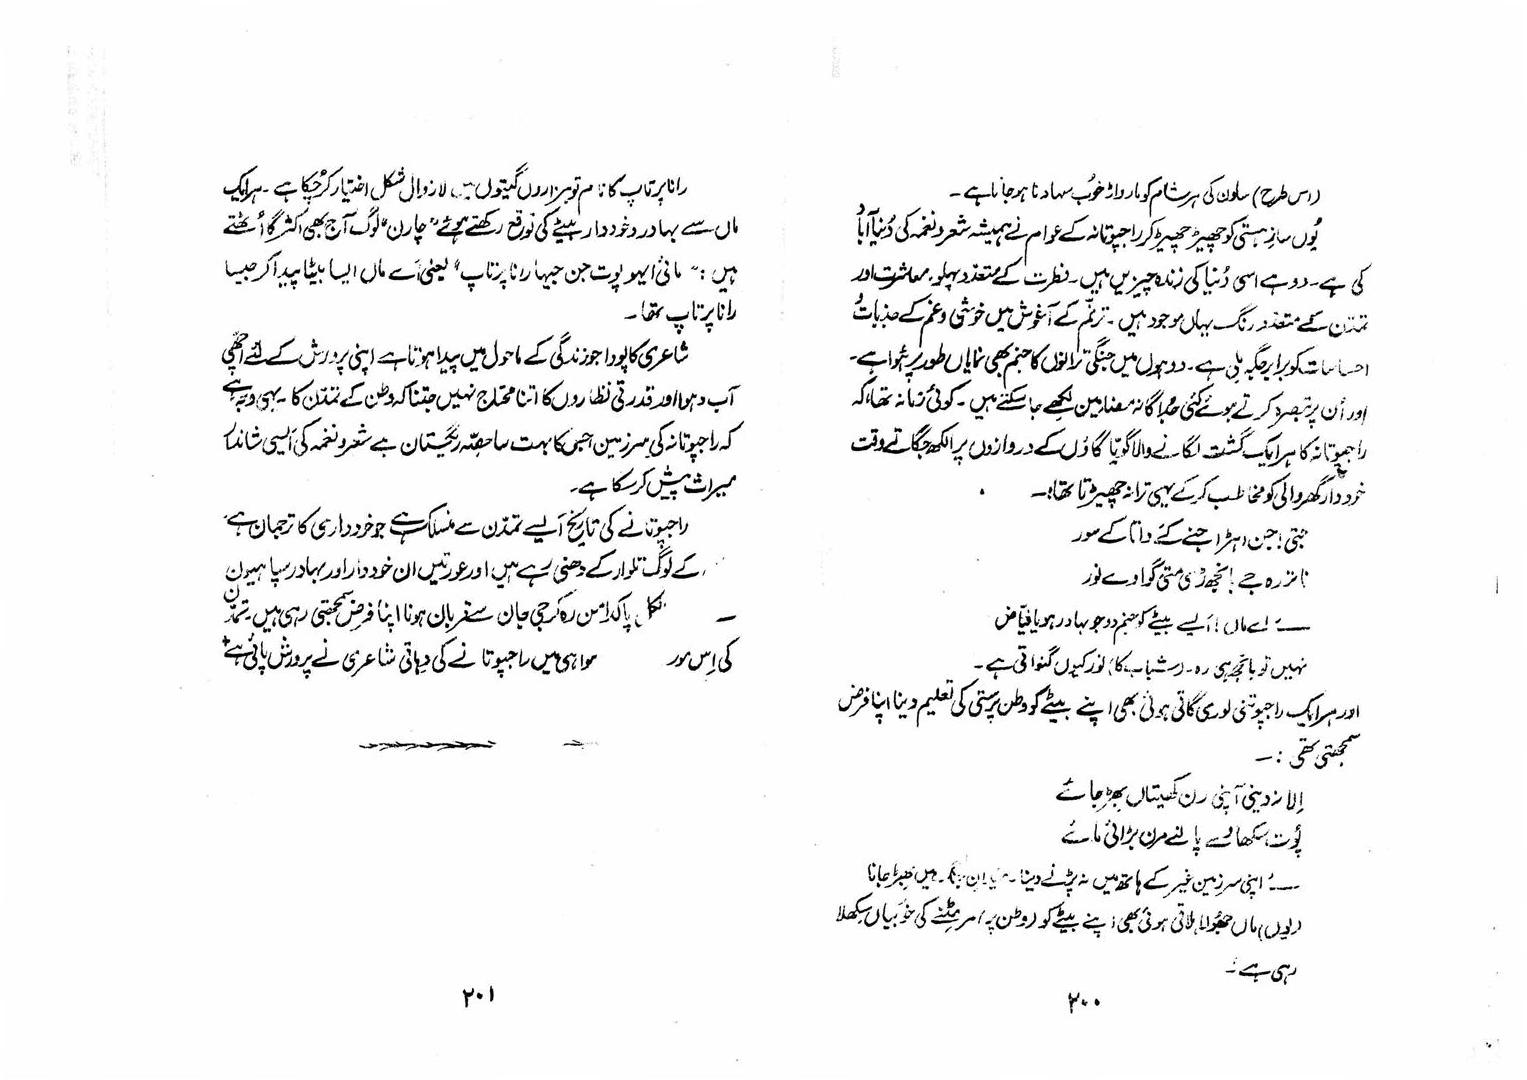 (اس طرح) ساون کی ہر شام کو مارواڑ خوب سہاونا ہو جاتا ہے۔
یُوں سازِ ہستی کو چھیڑ چھیڑ کر راجپوتانہ کے عوام نے ہمیشہ شعر و نغمہ کی دُنیا آباد
کی ہے۔ دوہے اسی دُنیا کی زندہ چیزیں ہیں۔ فطرت کے متعدد پہلو، معاشرت اور
تمدّن کے متعدد رنگ یہاں موجود ہیں۔ ترنّم کے آغوش میں خوشی و غم کے جذبات و
احساسات کو برابر جگہ ملی ہے۔ دوہوں میں جنگی ترانوں کا جنم بھی نمایاں طور پر ہُوا ہے۔
اور اُن پر تبصرہ کرتے ہوئے کئی جُداگانہ مضامین لکھے جا سکتے ہیں۔ کوئی زمانہ تھا، کہ
راجپوتانہ کا ہر ایک گشت لگانے والا گویّا گاؤں کے دروازوں پر الکھ جگاتے وقت
خوددار گھر والی کو مخاطب کر کے یہی ترانہ چھیڑتا تھا:۔
جننی! جن اہڑا جنے کے داتا کے سور
ناتر رہ جے بانجھڑی متی گواوے نور
—ؔ اے ماں! ایسے بیٹے کو جنم دو جو بہادر ہو یا فیّاض
نہیں تو بانجھ ہی رہ۔ (شباب کا) نور کیوں گنواتی ہے۔
اور ہر ایک راجپوتنی لوری گاتی ہوئی بھی اپنے بیٹے کو وطن پرستی کی تعلیم دینا اپنا فرض
سمجھتی تھی :۔
اِلا نہ دینی آپنی رن کھیتاں بھِڑ جائے
پُوت سکھاوے پالنے مرن بڑائی مائے
—ؔ اپنی سرزمین غیر کے ہاتھ میں نہ پڑنے دینا۔ میدان میں بھِڑ جانا
(یوں) ماں جھُولا جھلاتی ہوئی بھی اپنے بیٹے کو (وطن پر) مر مِٹنے کی خوبیاں سِکھلا
رہی ہے :۔
۲۰۰
رانا پرتاپ کا نام تو ہزاروں گیتوں میں لازوال شکل اختیار کر چُکا ہے۔ ہر ایک
ماں سے بہادر و خوددار بیٹے کی توقع رکھتے ہوئے "چارن" لوگ آج بھی اکثر گا اُٹھتے
ہیں :۔ "مائی ایہو پوت جن جیہا رانا پرتاپ" یعنی اَے ماں ایسا بیٹا پیدا کر جیسا
رانا پرتاپ تھا۔
شاعری کا پودا جو زندگی کے ماحول میں پیدا ہوتا ہے اپنی پرورش کے لئے اچھی
آب و ہوا اور قدرتی نظاروں کا اتنا محتاج نہیں جتنا کہ وطن کے تمدّن کا۔ یہی وجہ ہے
کہ راجپوتانہ کی سرزمین جس کا بہت سا حصّہ ریگستان ہے شعر و نغمہ کی اَیسی شاندار
میراث پیش کر سکا ہے۔
راجپوتانے کی تاریخ اَیسے تمدّن سے منسلک ہے جو خودداری کا ترجمان ہے۔
کے لوگ تلوار کے دھنی رہے ہیں اور عورتیں ان خوددار اور بہادر سپاہیوں
پاک دامن رہ کر جی جان سے قربان ہونا اپنا فرض سمجھتی رہی ہیں۔ تمدّن
کی اِس میں راجپوتانے کی دیہاتی شاعری نے پرورش پائی ہے
۲۰۱